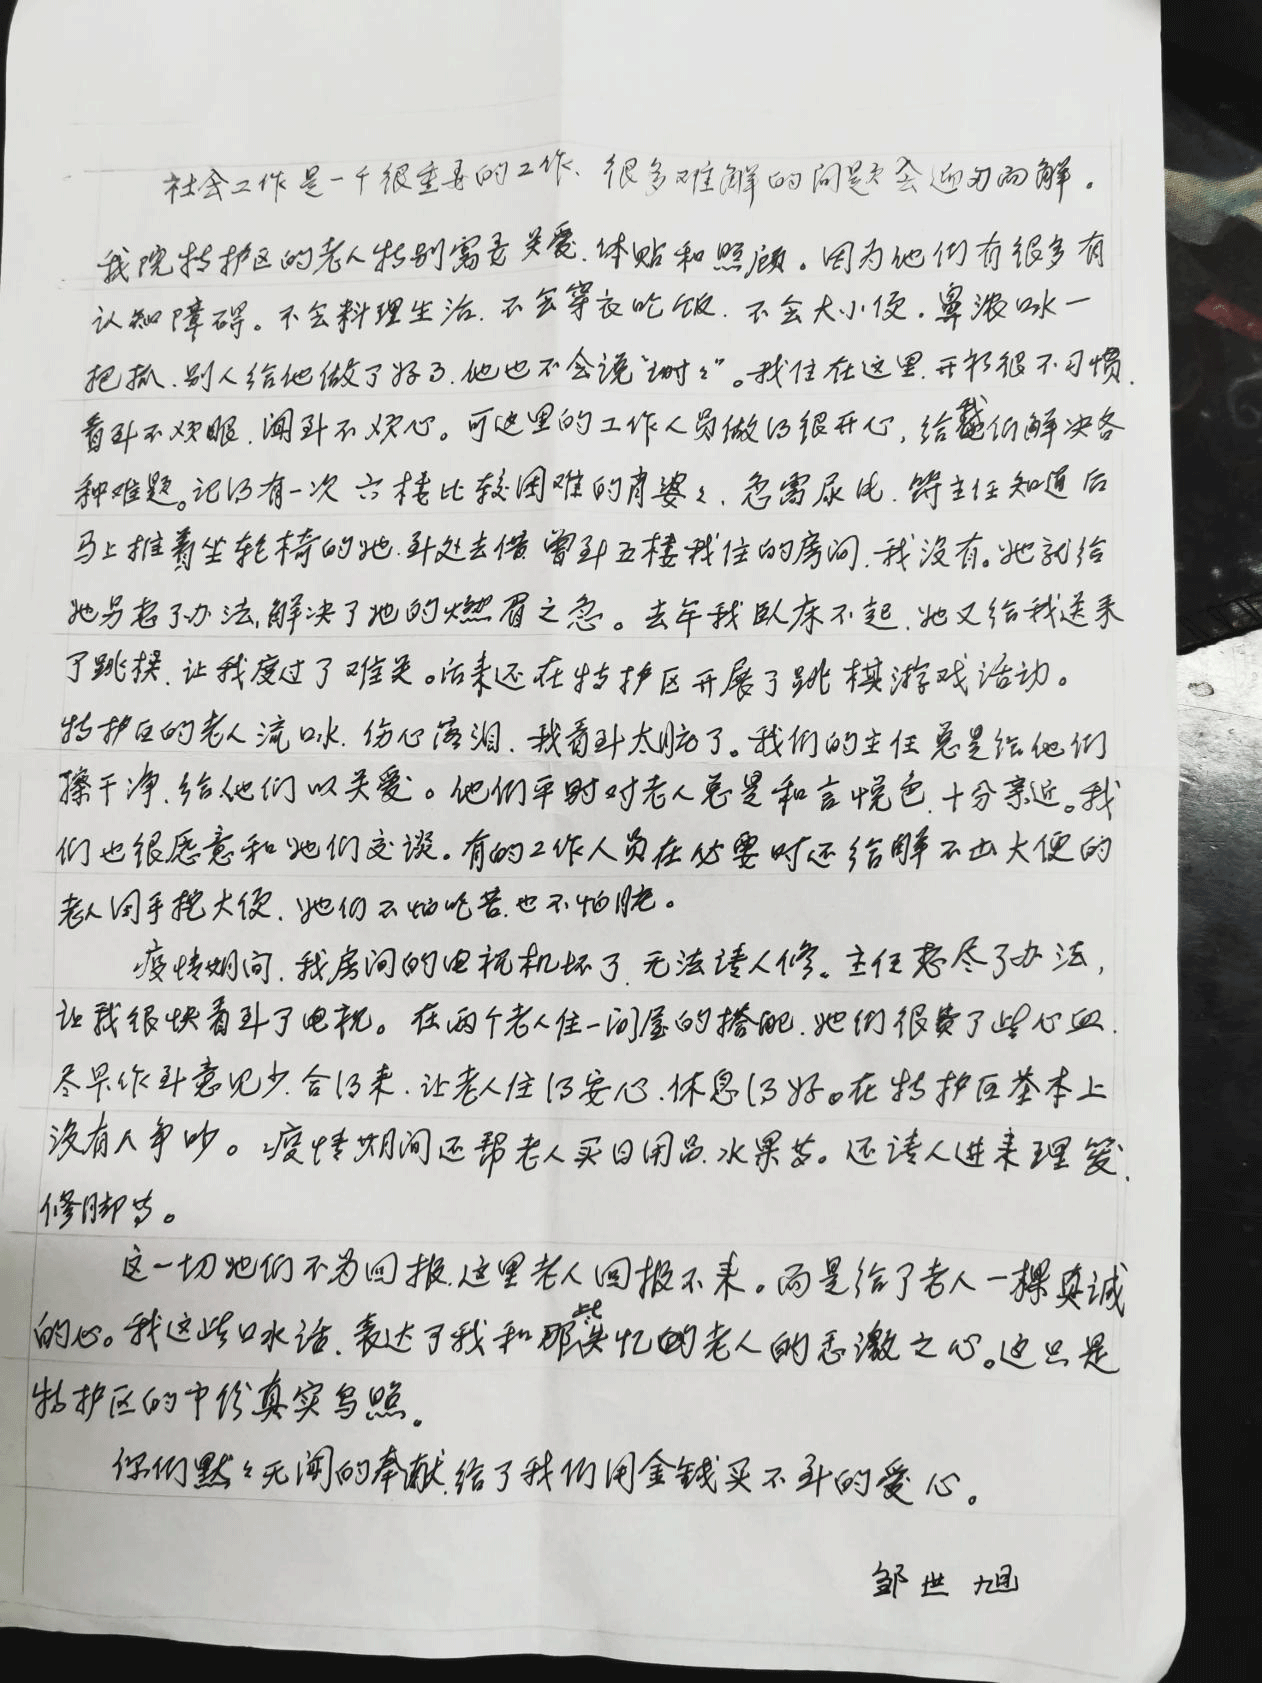 社会工作是一个很重要的工作、很多难解的问题会迎刃而解。
我院特护区的老人特别需要关爱、体贴和照顾。因为他们有很多有
认知障碍。不会料理生活、不会穿衣吃饭、不会大小便。鼻浓口水一
把抓、别人给他做了好事、他也不会说“谢々”。我住在这里、开初很不习惯、
看到不欢眼、闻到不欢心。可这里的工作人员做得很开心，给他们解决各
种难题。记得有一次六楼比较困难的肖婆々、急需尿片、符主任知道后
马上推着坐轮椅的她、到处去借、曾到五楼我住的房间、我没有。她就给
她另想了办法，解决了她的燃眉之急。去年我卧床不起、她又给我送来
了跳棋、让我度过了难关。后来还在特护区开展了跳棋游戏活动。
特护区的老人流口水、伤心落泪、我看到太脏了。我们的主任总是给他们
擦干净、给他们以关爱。他们平时对老人总是和言悦色、十分亲近。我
们也很愿意和她们交谈。有的工作人员在必要时还给解不出大便的
老人用手挖大便、她们不怕吃苦、也不怕脏。
疫情期间、我房间的电视机坏了、无法请人修。主任想尽了办法，
让我很快看到了电视。在两个老人住一间屋的搭配、她们很费了些心血、
尽早作到意见少、合得来、让老人住得安心、休息得好。在特护区基本上
没有人争吵。疫情期间还帮老人买日用品、水果等。还请人进来理发、
修脚等。
这一切她们不为回报、这里老人回报不来。而是给了老人一棵真诚
的心。我这些口水话、表达了我和那些失忆的老人的感激之心。这只是
特护区的中份真实写照。
你们默々无闻的奉献、给了我们用金钱买不到的爱心。
邹世旭